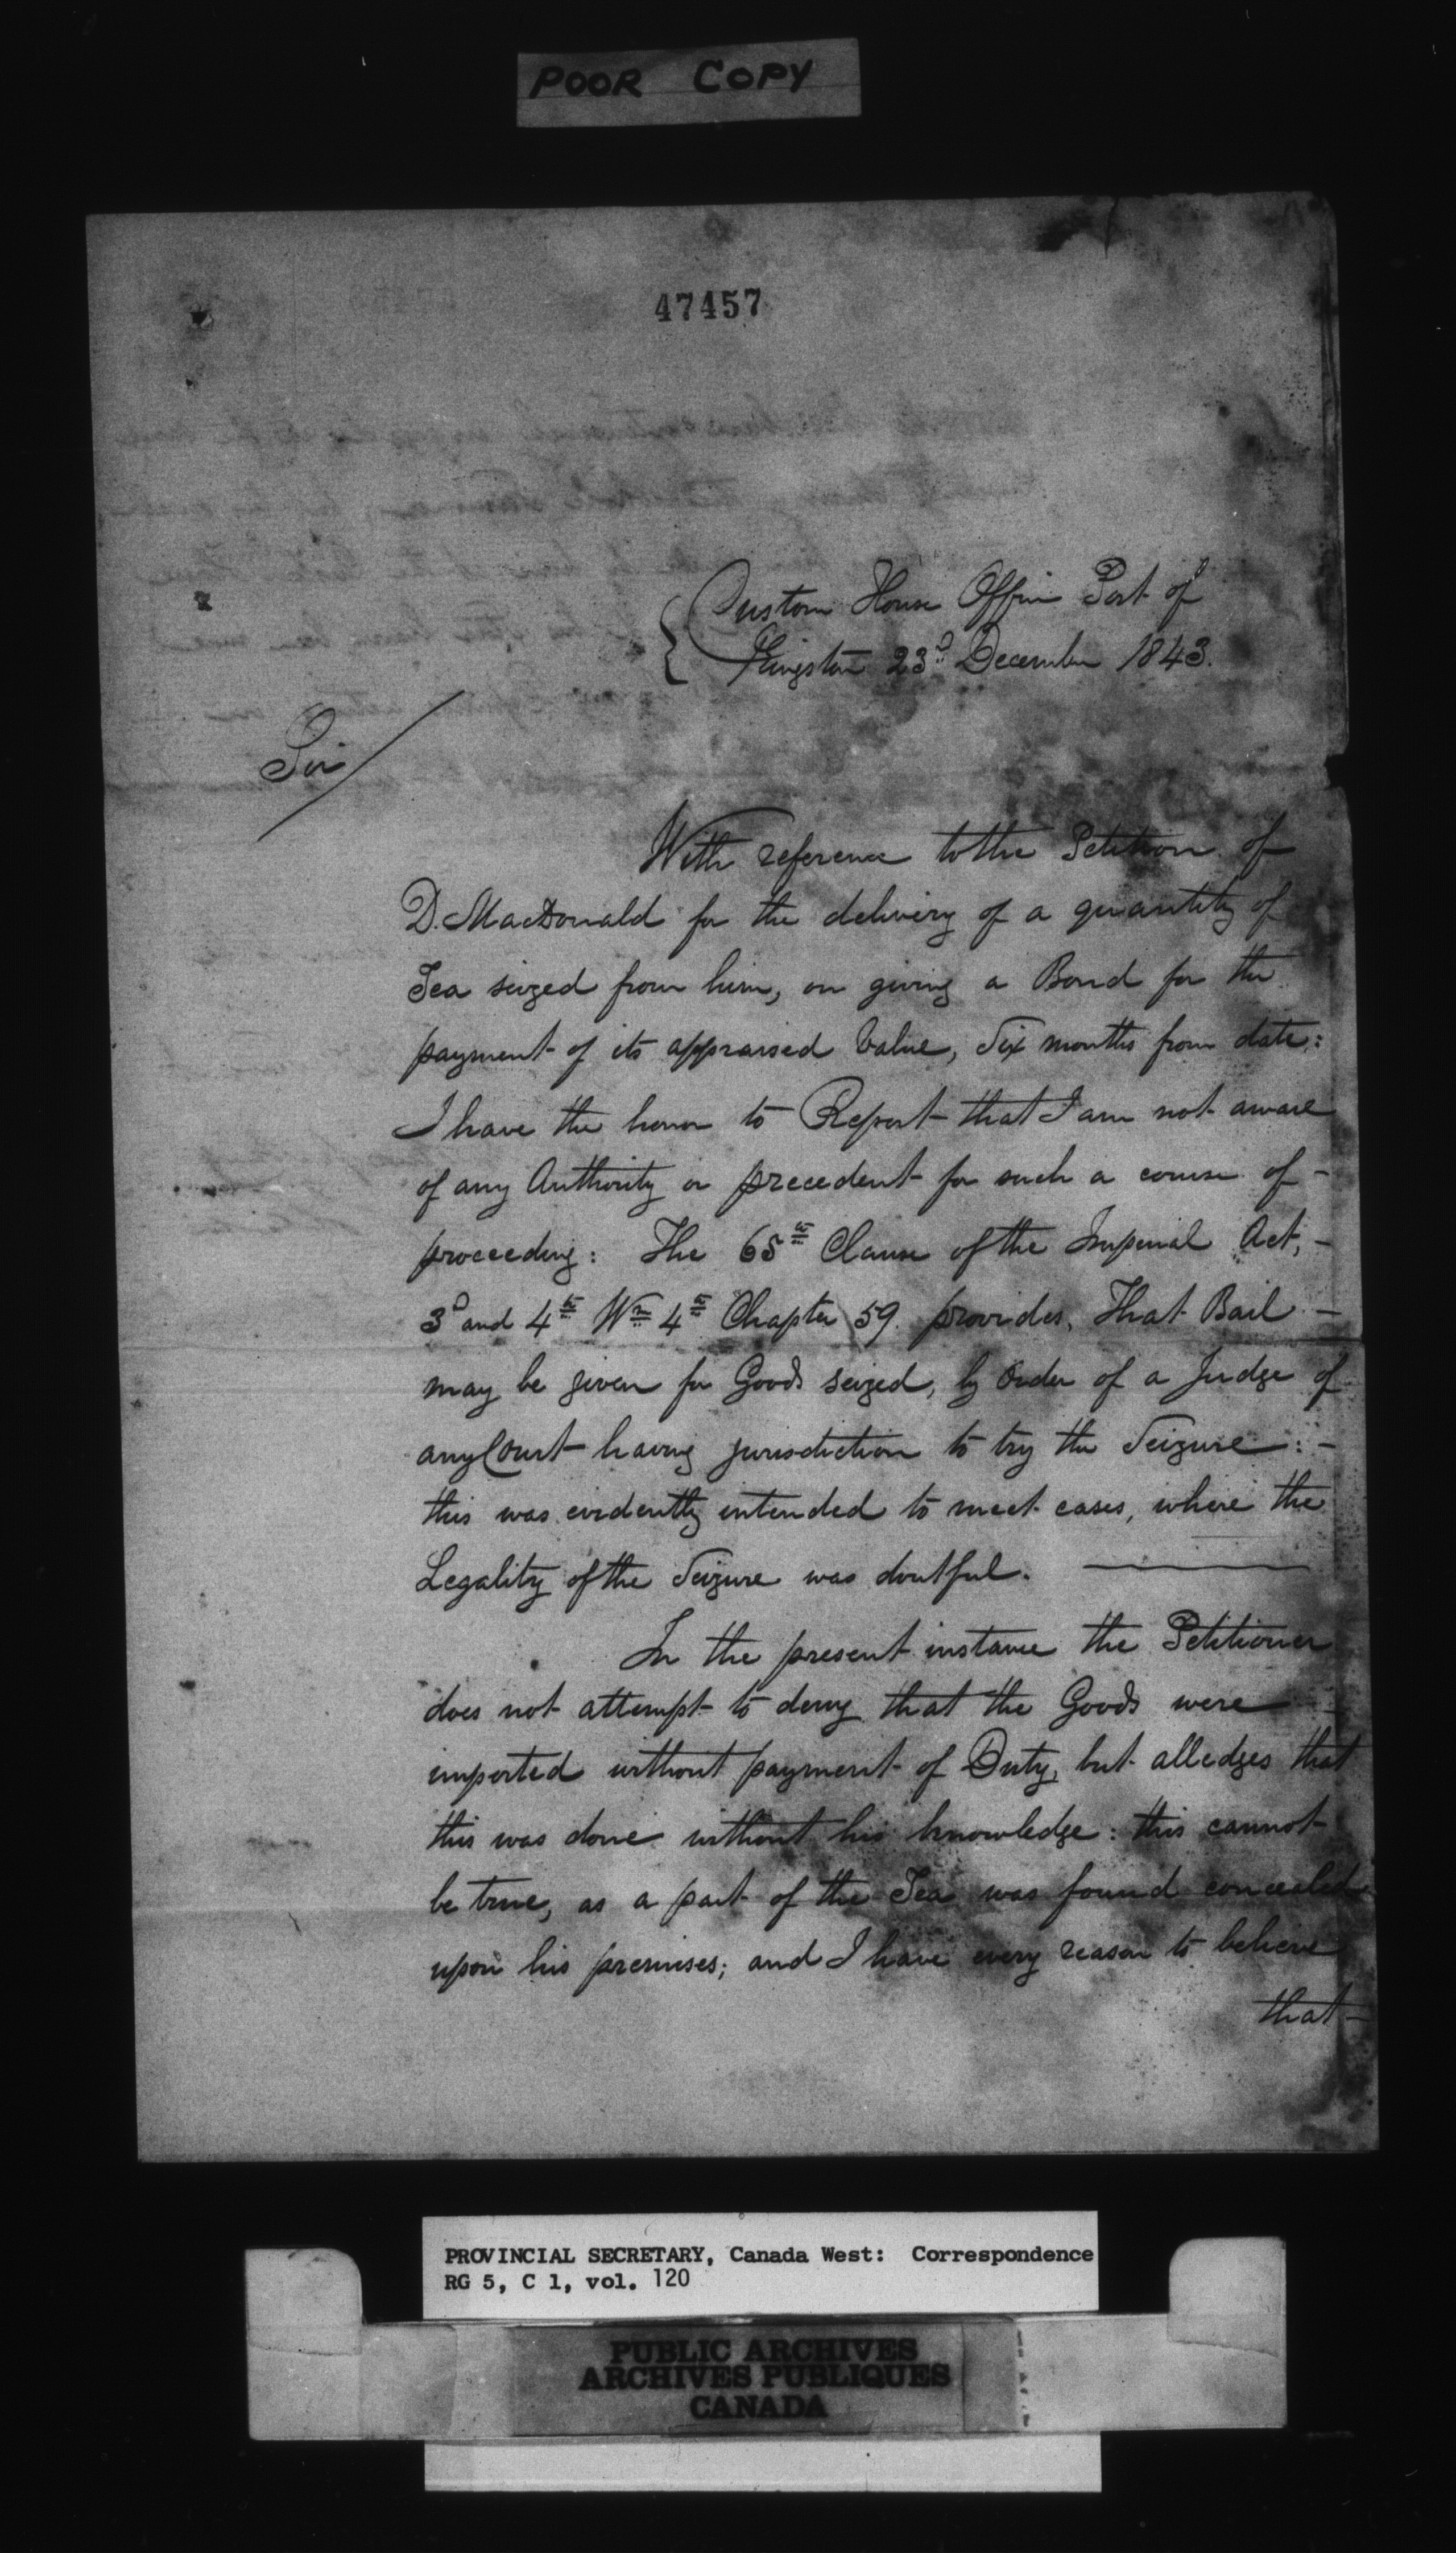 POOR COPY
47457
Custom House Office Port of
Kingston 23d December 1843.
Sir
With reference to the Petition of
D. MacDonald for the delivery of a quantity of
Tea seized from him, on giving a Bond for the
payment of its appraised Value, Six months from date:
I have the honor to Report that I am not aware
of any Authority or precedent for such a course of -
proceeding: The 65th Clause of the Imperial Act, -
3d and 4th Wm 4th Chapter 59. provides, That Bail -
may be given for Goods seized, by Order of a Judge of
any Court having jurisdiction to try the Seizure: -
this was evidently intended to meet cases, where the
Legality of the Seizure was doutful.
In the present instance the Petitioner
does not attempt to deny that the Goods were
imported without payment of Duty, but alledges that
this was done without his knowledge: this cannot
be true, as a part of the Tea was found concealed
upon his premises; and I have every reason to believe
that -
PROVINCIAL SECRETARY, Canada West: Correspondence
RG 5, C 1, vol. 120
PUBLIC ARCHIVES
ARCHIVES PUBLIQUES
CANADA